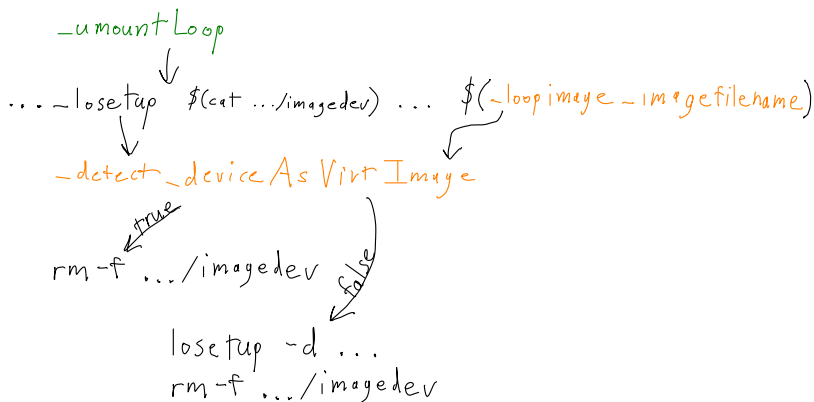 _umountLoop
... _losetup $(cat .../imagedev) ... $(_loopimage_imagefilename)
_detect_deviceAsVirtImage
true
rm -f .../imagedev
false
losetup -d ...
rm -f .../imagedev